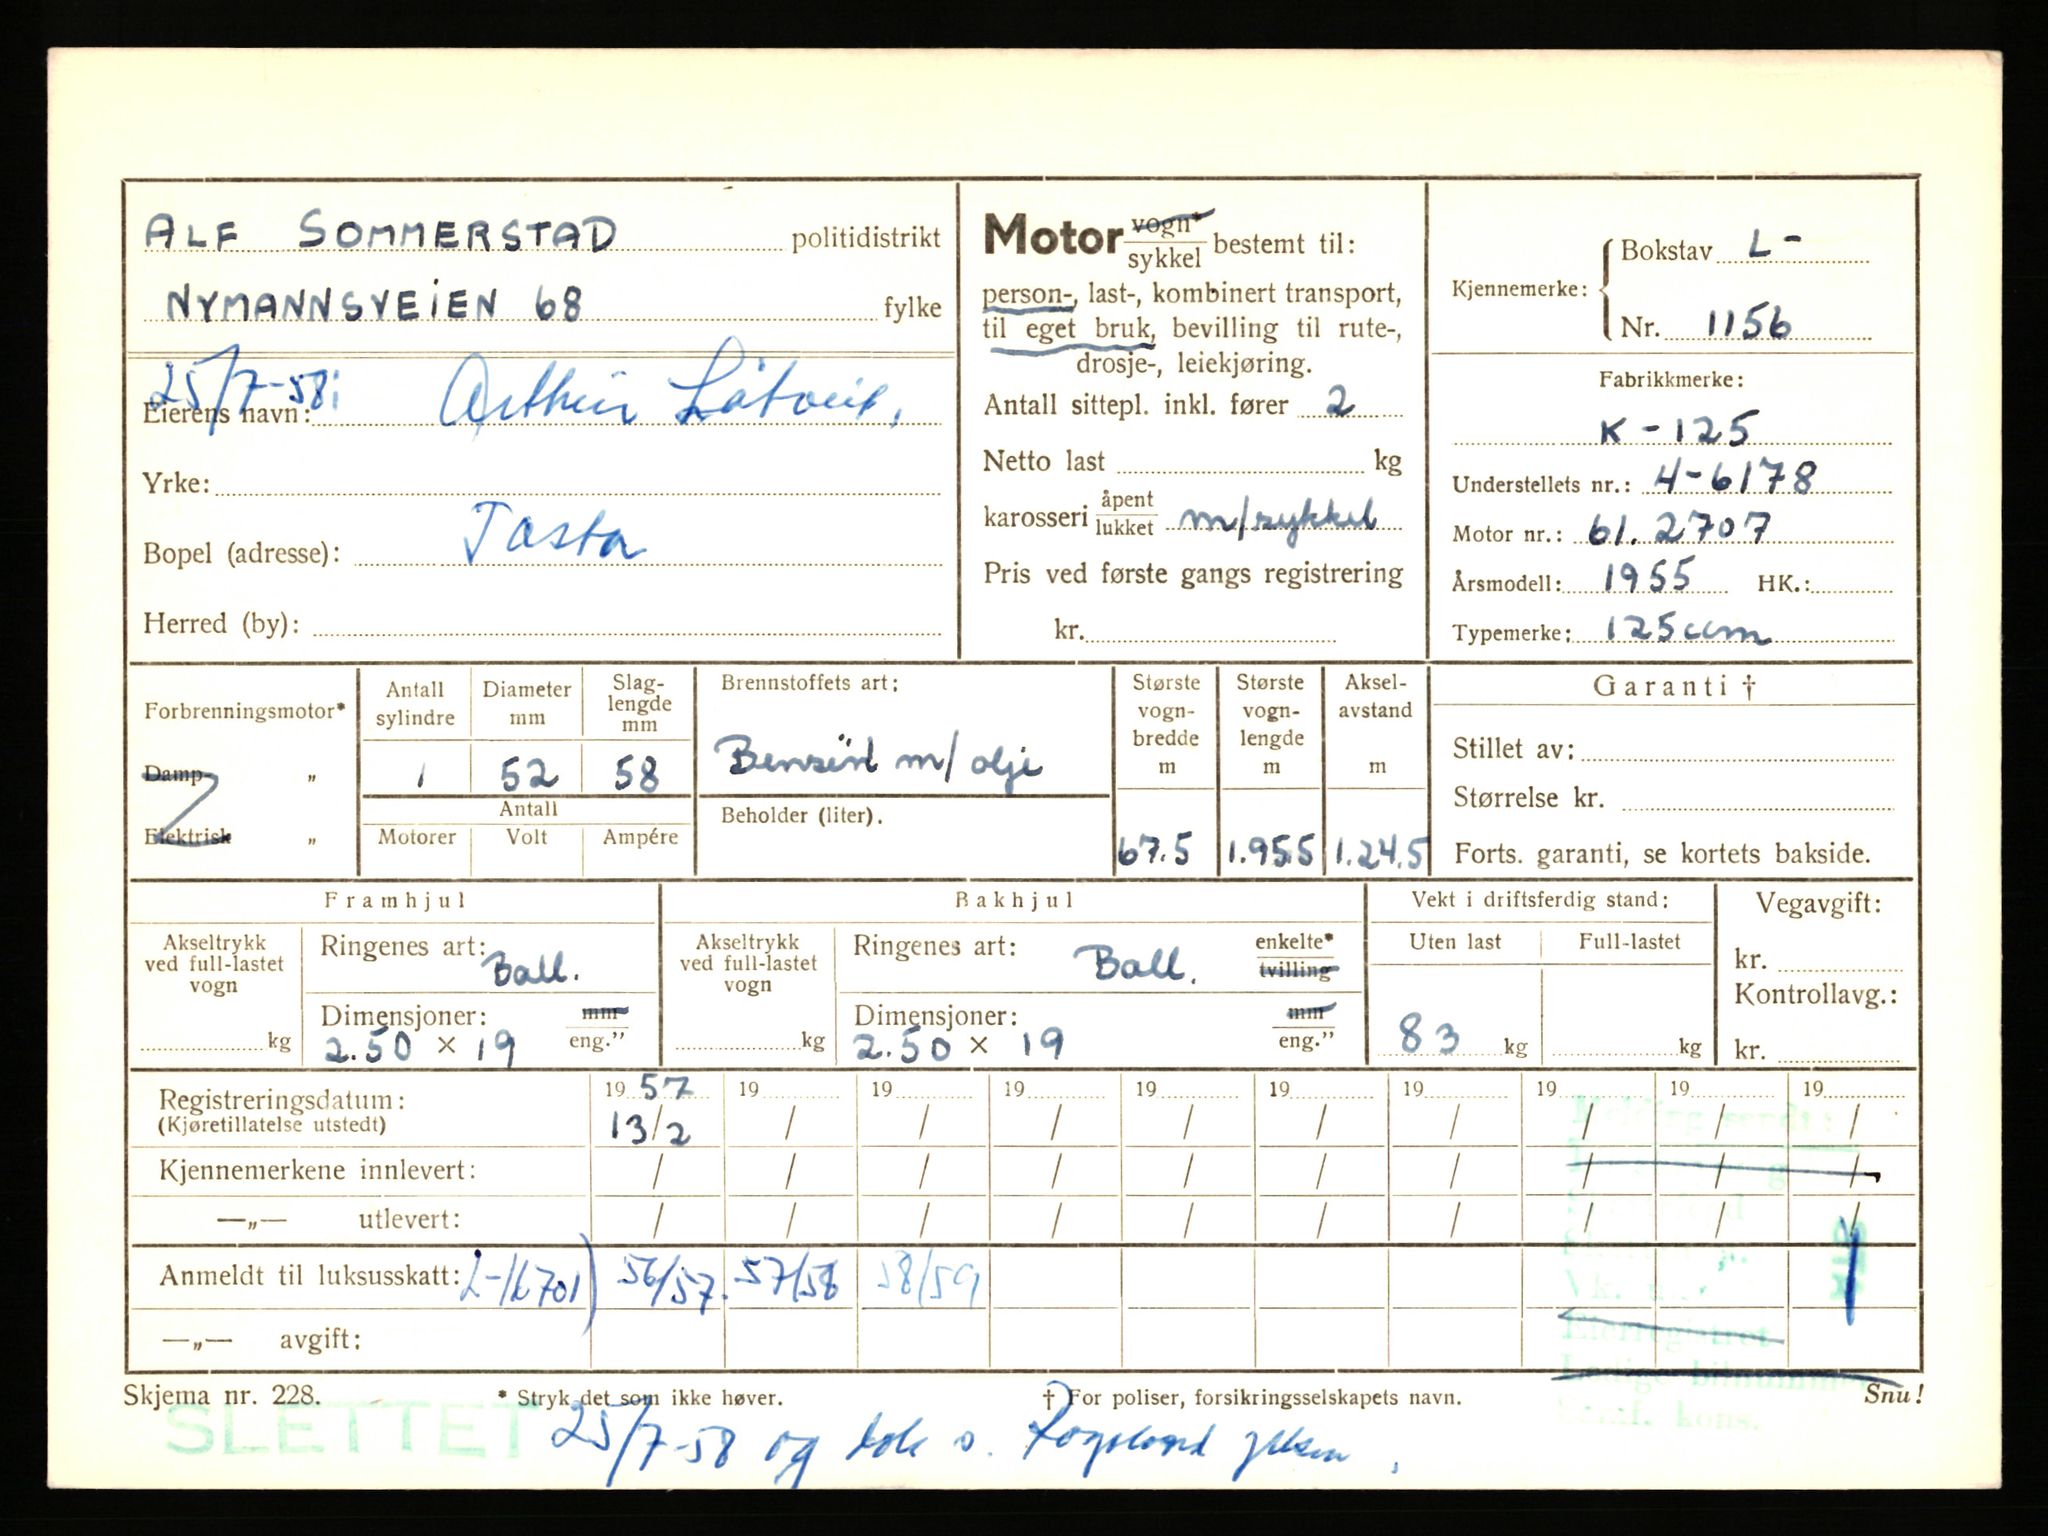 ALF SOMMERSTAD politidistrikt
NYMANNSVEIEN 68 fylke
25/7-58:
Eierens navn: Arthur
Yrke:
Bopel (adresse): Tasta
Herred (by):
Motor vogn* / sykkel bestemt til:
person-, last-, kombinert transport,
til eget bruk, bevilling til rute-,
drosje-, leiekjøring.
Antall sittepl. inkl. fører 2
Netto last kg
karosseri åpent / lukket m/sykkel
Pris ved første gangs registrering
kr.
Kjennemerke: Bokstav L-
Nr. 1156
Fabrikkmerke:
K-125
Understellets nr.: 4-6178
Motor nr.: 61.2707
Årsmodell: 1955 HK.:
Typemerke: 125 ccm
Forbrenningsmotor*
Damp- „
Elektrisk „
Antall sylindre Diameter mm Slag-lengde mm
1 52 58
Antall
Motorer Volt Ampére
Brennstoffets art:
Bensin m/olje
Beholder (liter).
Største vogn-bredde m Største vogn-lengde m Aksel-avstand m
67.5 1.95.5 1.24.5
Garanti †
Stillet av:
Størrelse kr.
Forts. garanti, se kortets bakside.
Framhjul
Akseltrykk ved full-lastet vogn
kg
Ringenes art: Ball.
Dimensjoner: mm
2.50 × 19 eng.”
Bakhjul
Akseltrykk ved full-lastet vogn
kg
Ringenes art: Ball. enkelte* / tvilling
Dimensjoner: mm
2.50 × 19 eng.”
Vekt i driftsferdig stand:
Uten last Full-lastet
83 kg kg
Vegavgift:
kr.
Kontrollavg.:
kr.
Registreringsdatum: 19 57 19 19 19 19 19 19 19 19 19
(Kjøretillatelse utstedt) 13/2 / / / / / / / / /
Kjennemerkene innlevert: / / / / / / / / / /
—„— utlevert: / / / / / / / / / /
Anmeldt til luksusskatt: L-16701) 56/57. 57/58 58/59
—„— avgift:
Skjema nr. 228. * Stryk det som ikke høver. † For poliser, forsikringsselskapets navn. Snu!
SLETTET 25/7-58 og